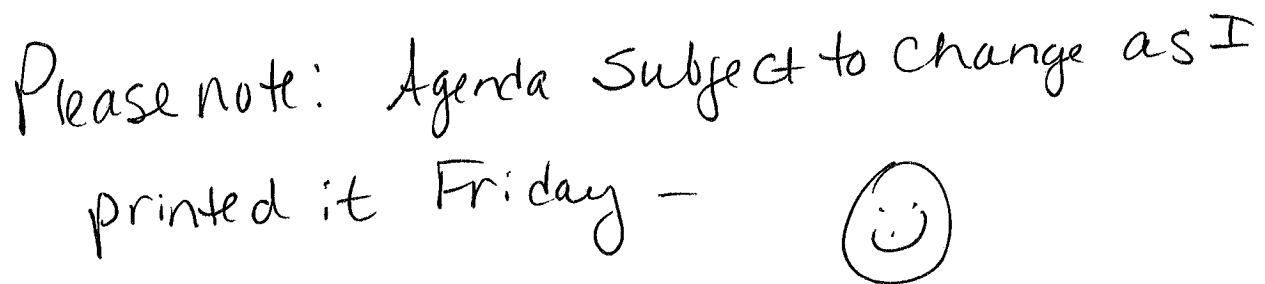 Please note: Agenda Subject to change as I
printed it Friday –